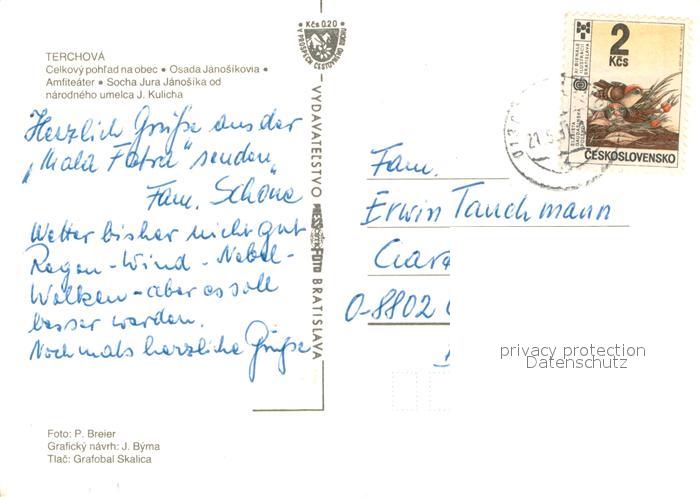 TERCHOVÁ
Celkový pohľad na obec • Osada Jánošíkovia •
Amfiteáter • Socha Jura Jánošíka od
národného umelca J. Kulicha
Herzlich Grüße aus der
„Mala Fatra" senden
Fam. Schöne
Wetter bisher nicht gut
Regen - Wind - Nebel -
Wolken - aber es soll
besser werden.
Nochmals herzliche Grüße
Foto: P. Breier
Grafický návrh: J. Býma
Tlač: Grafobal Skalica
Kčs 0,20
V PROSPECH CESTOVNÉHO RUCHU
VYDAVATEĽSTVO PRESSFOTO BRATISLAVA
2
Kčs
ČESKOSLOVENSKO
Fam.
Erwin Tauchmann
O-8802
privacy protection
Datenschutz